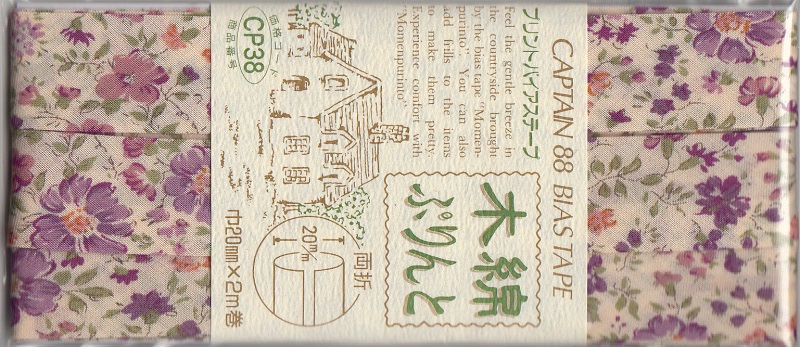 CAPTAIN 88 BIAS TAPE
プリントバイアステープ
Feel the gentle breeze in
the countryside brought
by the bias tape "Momen-
purinto". You can also
add frills to the items
to make them pretty.
Experience comfort with
"Momenpurinto".
価格コード
CP38
商品番号
木綿
ぷりんと
両折
20m/m
巾20mm×2m巻